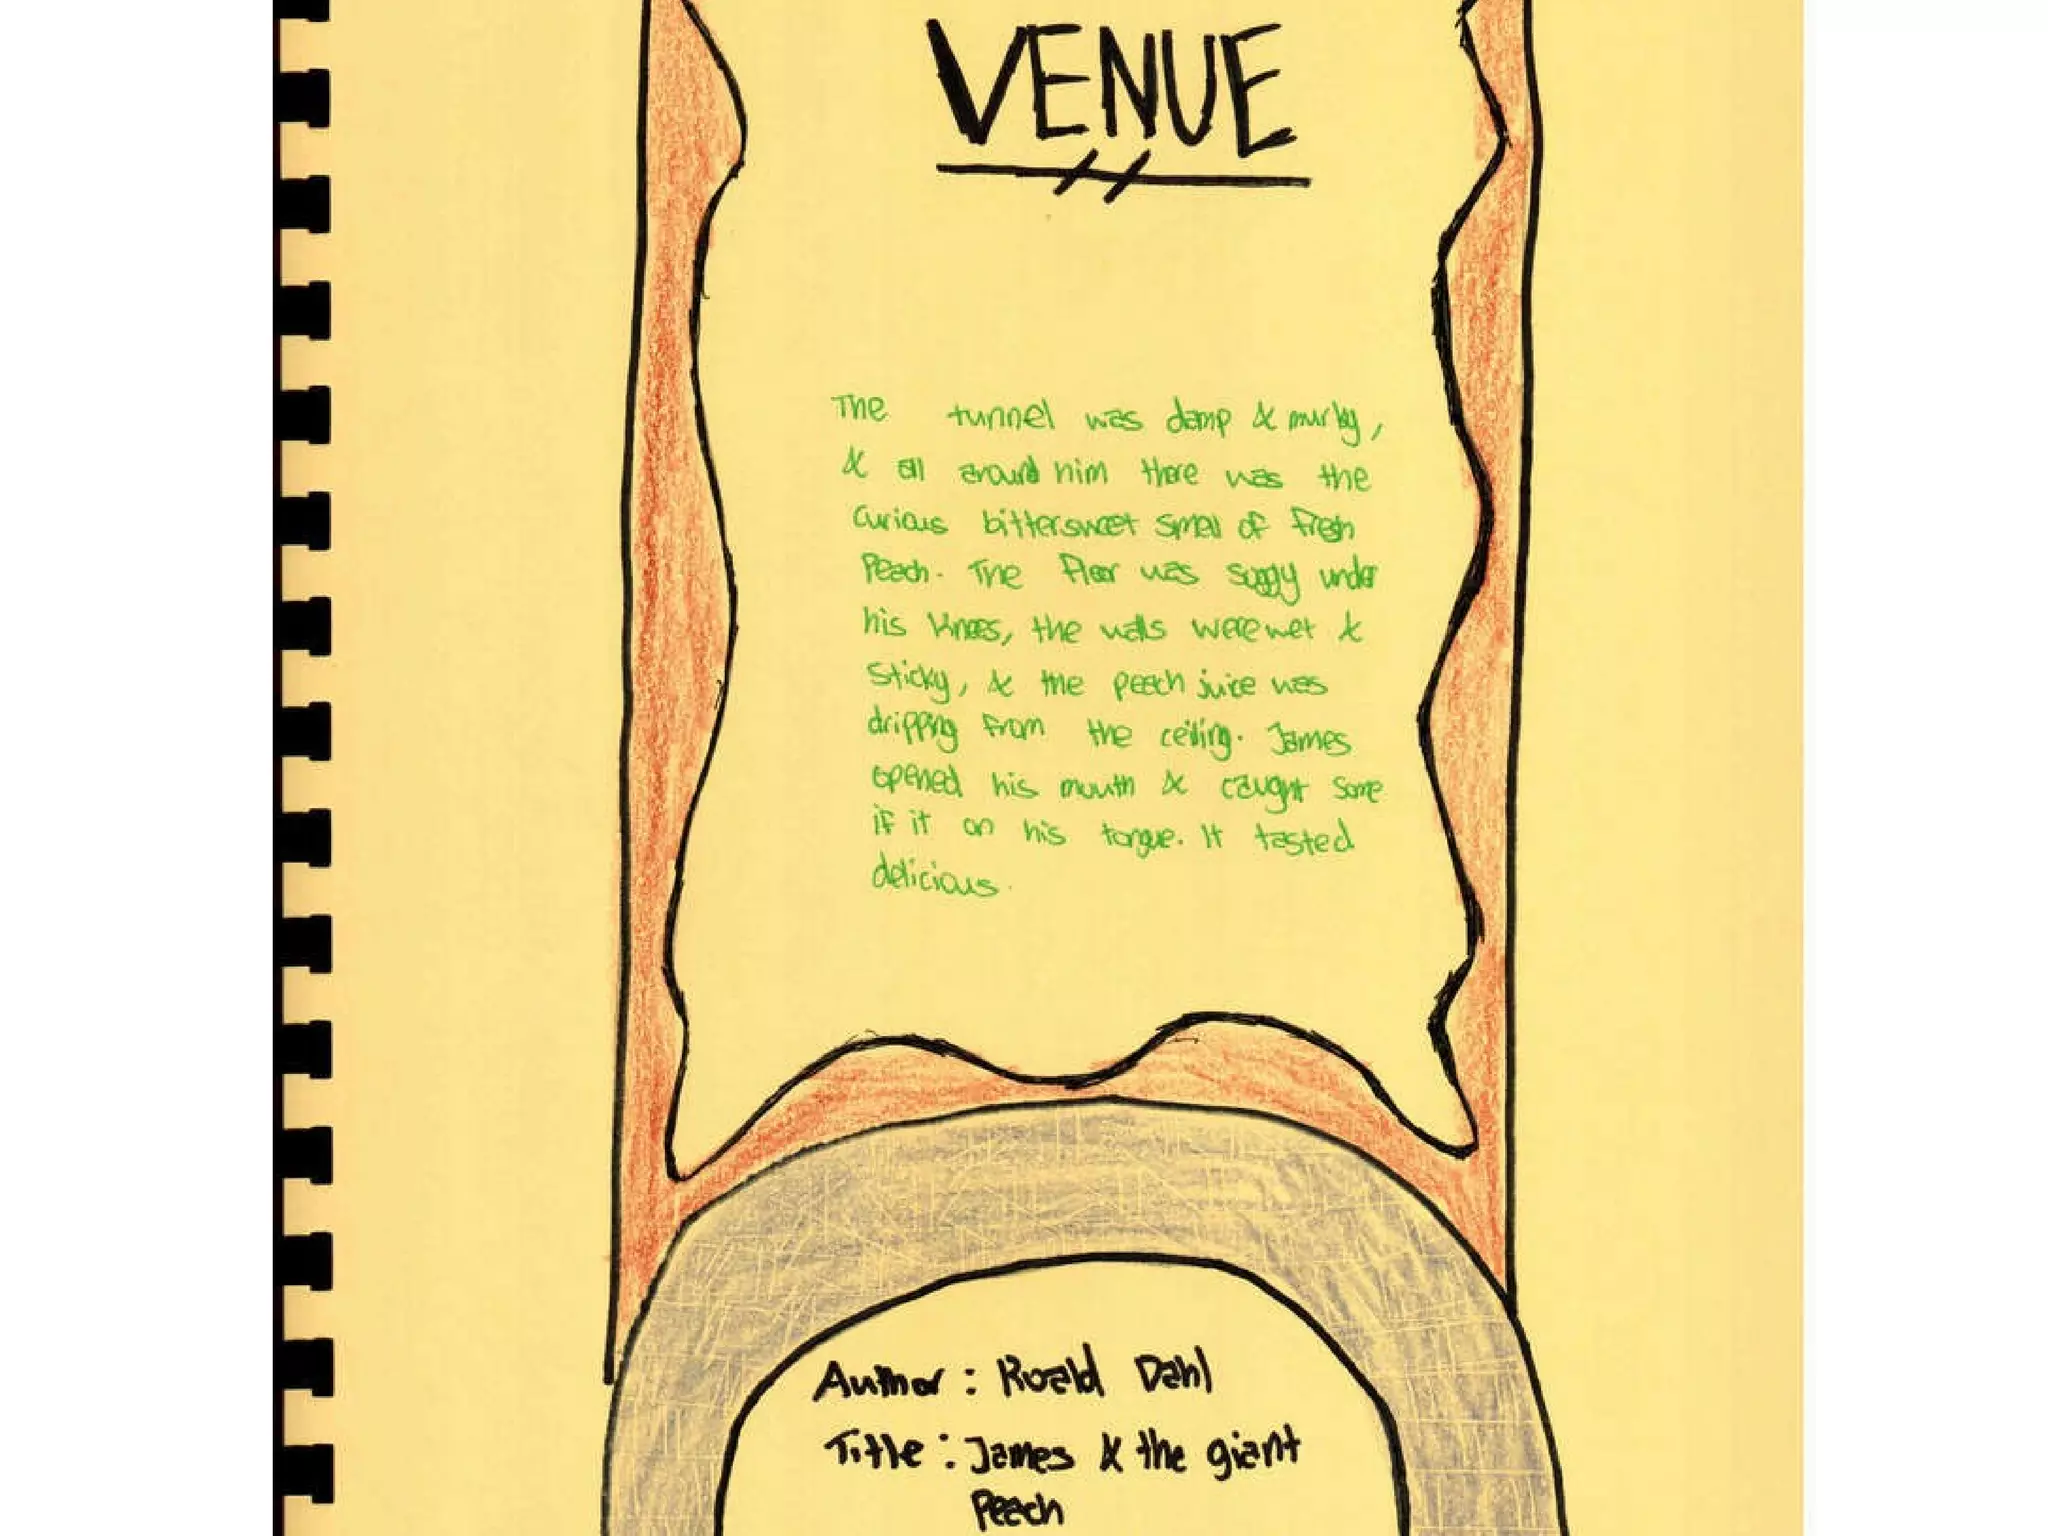 VENUE
The tunnel was damp & murky,
& all around him there was the
curious bittersweet smell of fresh
Peach. The floor was soggy under
his knees, the walls were wet &
sticky, & the peach juice was
dripping from the ceiling. James
opened his mouth & caught some
if it on his tongue. It tasted
delicious.
Author: Roald Dahl
Title: James & the giant
Peach